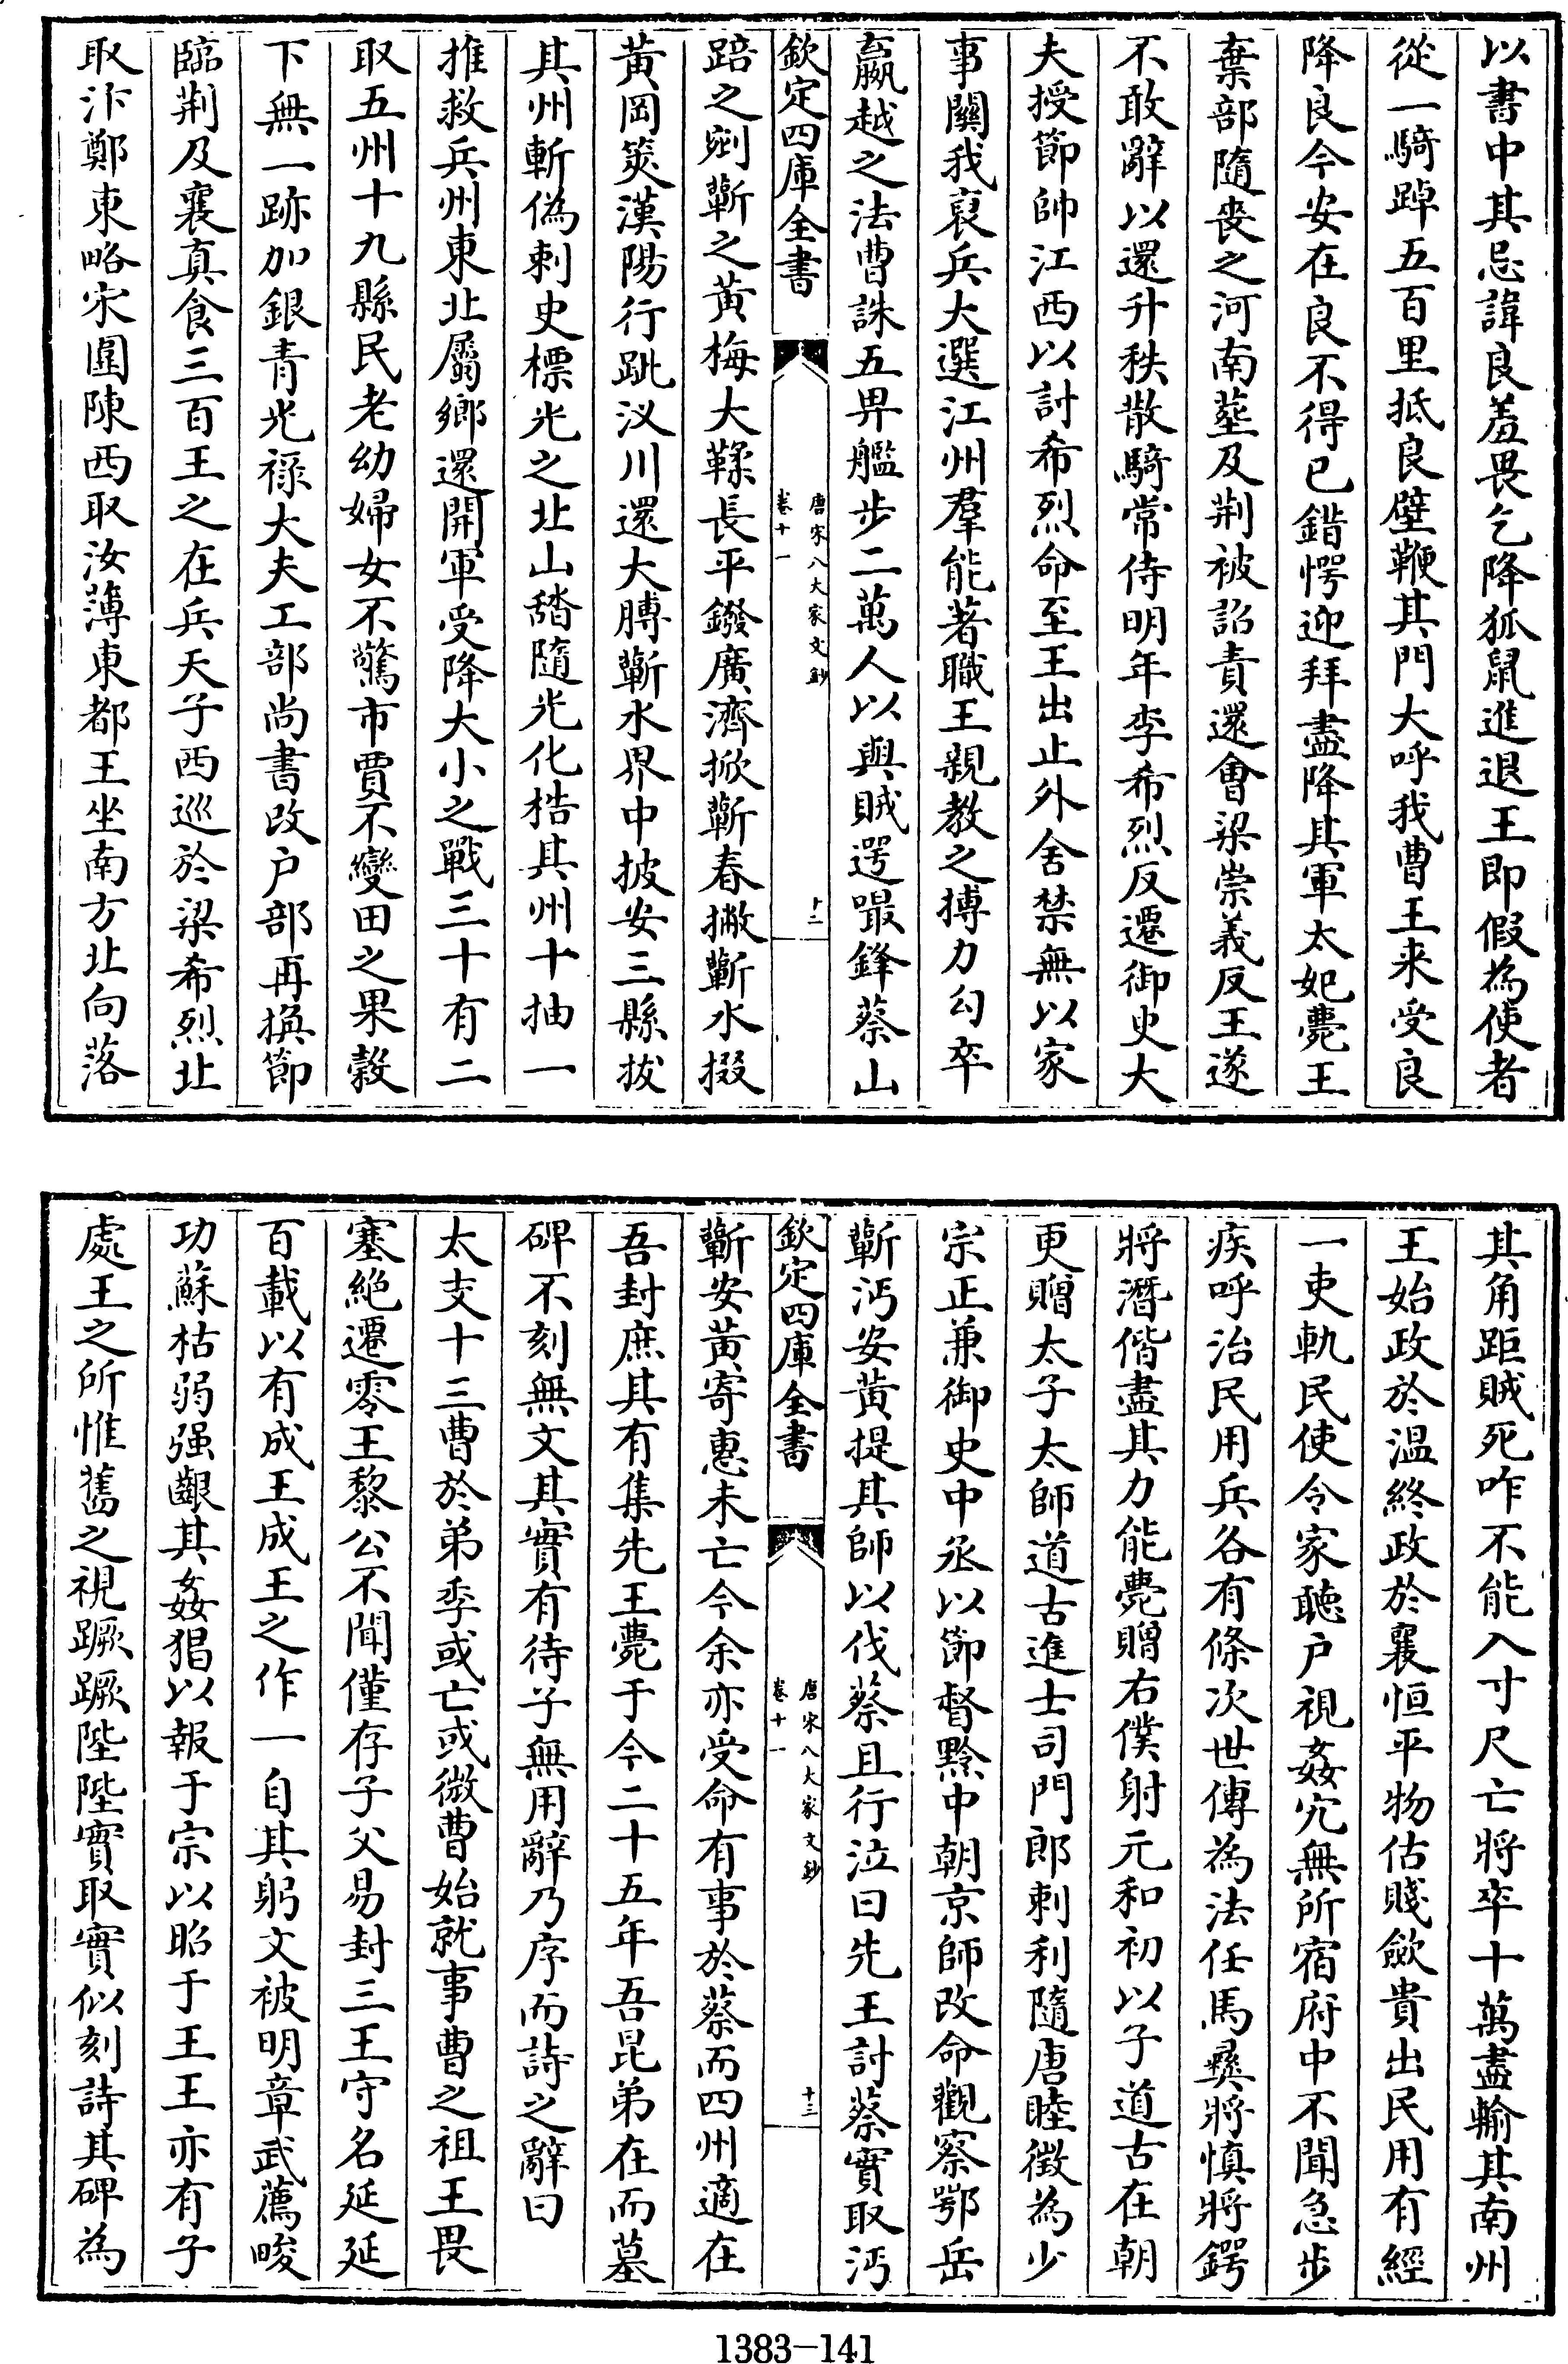 以書中其忌諱良羞畏乞降狐鼠進退王即假為使者
從一騎踔五百里抵良壁鞭其門大呼我曹王来受良
降良今安在良不得已錯愕迎拜盡降其軍太妃薨王
棄部隨喪之河南塟及荆被詔責還㑹梁崇義反王遂
不敢辭以還升秩散騎常侍明年李希烈反遷御史大
夫授節帥江西以討希烈命至王出止外舍禁無以家
事關我裒兵大選江州羣能著職王親教之搏力勾卒
嬴越之法曹誅五畀艦步二萬人以與賊遌嘬鋒蔡山
欽定四庫全書
唐宋八大家文鈔
卷十一
十二
踣之剜蘄之黄梅大鞣長平鏺廣濟掀蘄春撇蘄水掇
黄岡筴漢陽行跐汊川還大膊蘄水界中披安三縣拔
其州斬偽刺史標光之北山㗳隨光化梏其州十抽一
推救兵州東北屬鄉還開軍受降大小之戰三十有二
取五州十九縣民老幼婦女不驚市賈不變田之果穀
下無一跡加銀青光祿大夫工部尚書改户部再換節
臨荆及襄真食三百王之在兵天子西巡於梁希烈北
取汴鄭東略宋圍陳西取汝薄東都王坐南方北向落
其角距賊死咋不能入寸尺亡將卒十萬盡輸其南州
王始政於温終政於襄恒平物估賤歛貴出民用有經
一吏軌民使令家聽户視姦宄無所宿府中不聞急步
疾呼治民用兵各有條次世傳為法任馬彞將慎將鍔
將潛偕盡其力能薨贈右僕射元和初以子道古在朝
更贈太子太師道古進士司門郎刺利隨唐睦徵為少
宗正兼御史中丞以節督黔中朝京師改命觀察鄂岳
蘄沔安黄提其師以伐蔡且行泣曰先王討蔡實取沔
欽定四庫全書
唐宋八大家文鈔
卷十一
十三
蘄安黄寄惠未亡今余亦受命有事於蔡而四州適在
吾封庶其有集先王薨于今二十五年吾昆弟在而墓
碑不刻無文其實有待子無用辭乃序而詩之辭曰
太支十三曹於弟季或亡或微曹始就事曹之祖王畏
塞絶遷零王黎公不聞僅存子父易封三王守名延延
百載以有成王成王之作一自其躬文被明章武薦畯
功蘇枯弱强齦其姦猖以報于宗以昭于王王亦有子
處王之所惟舊之視蹶蹶陛陛實取實似刻詩其碑為
1383-141